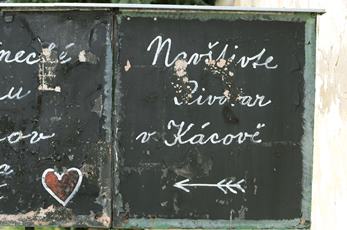 necké
u
ov
a
Navštivte
Pivovar
v Kácově